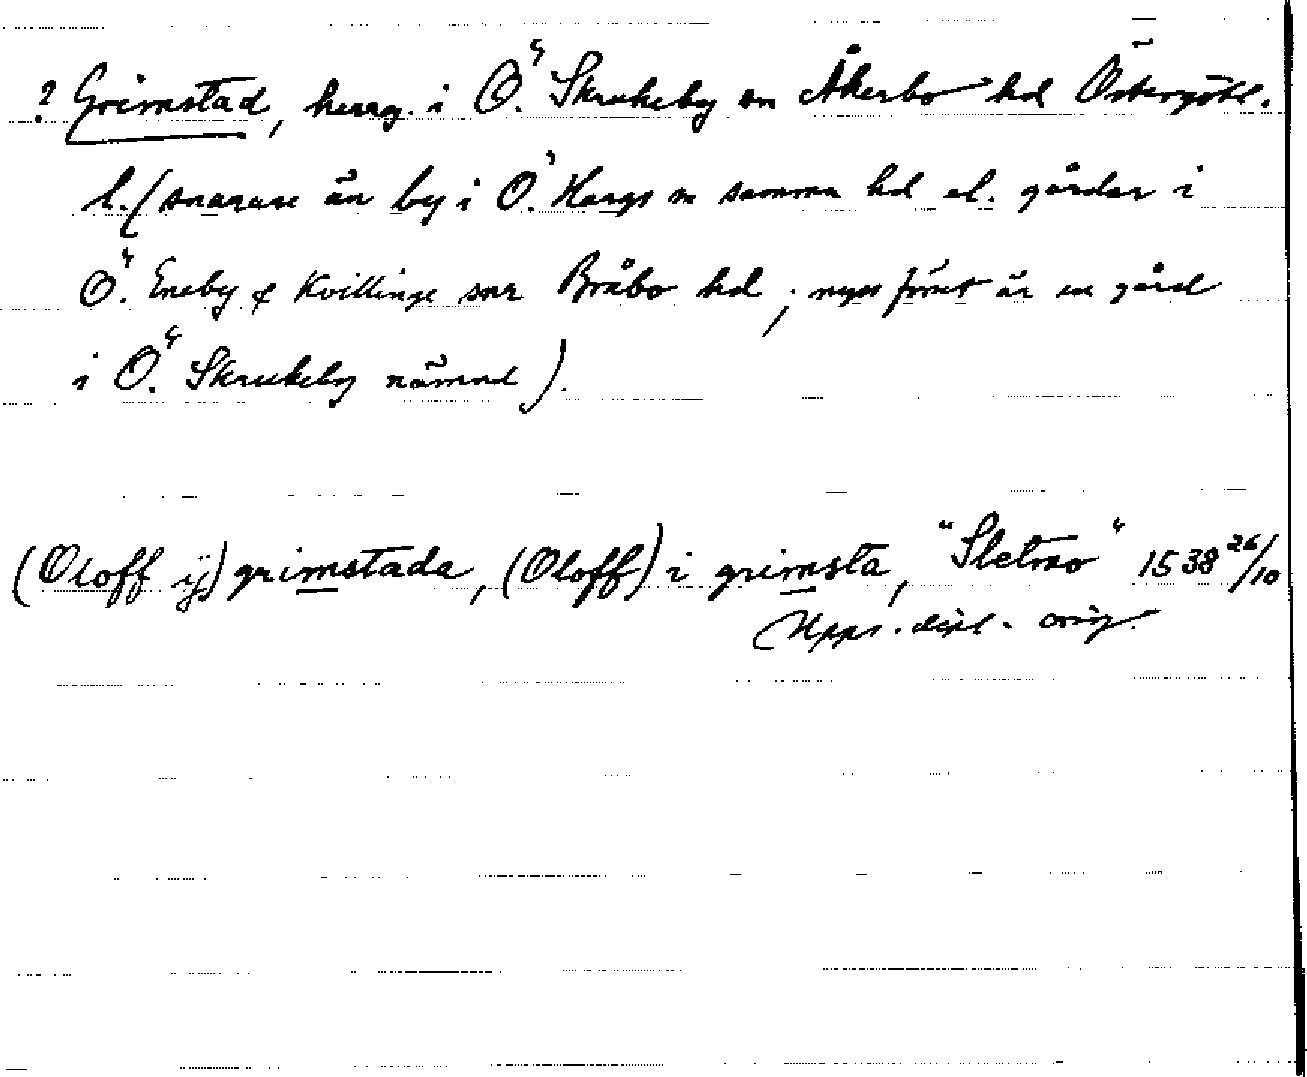 ? Grimstad, herrg. i Ö. Skrukeby sn Åkerbo hd Östergötl.
l. (snarare än by i Ö. Hargs sn samma hd el. gårdar i
Ö. Eneby & Kvillinge snr Bråbo hd; nyss förut är en gård
i Ö. Skrukeby nämnd).
(Oloff ÿ) grimstada, (Oloff) i grimsta, "Sletmo" 1538 26/10
Upps. dipl. orig.